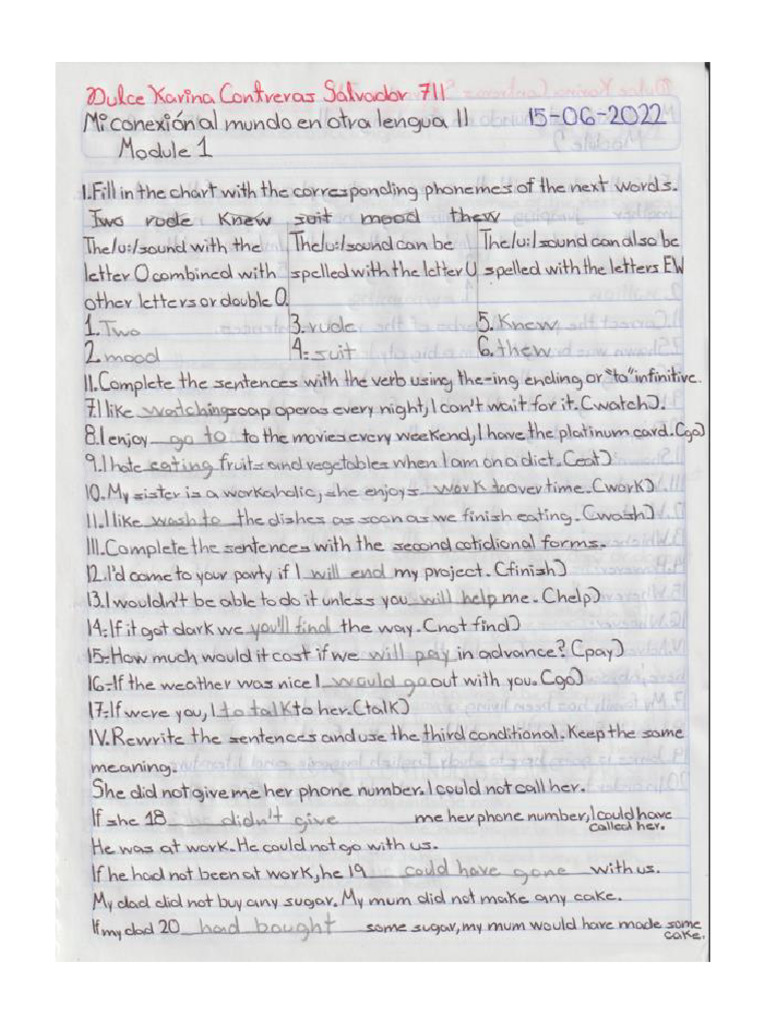 Dulce Karina Contreras Salvador 711
Mi conexión al mundo en otra lengua II 15-06-2022
Module 1
I. Fill in the chart with the corresponding phonemes of the next words.
Two rude Knew suit mood thew
The/u:/sound with the letter O combined with other letters or double O.
1. Two
2. mood
The/u:/sound can be spelled with the letter U
3. rude
4. suit
The/u:/sound can also be spelled with the letters EW
5. Knew
6. thew
II. Complete the sentences with the verb using the -ing ending or "to" infinitive.
7. I like watching soap operas every night, I can't wait for it. (watch).
8. I enjoy go to to the movies every weekend, I have the platinum card. (go)
9. I hate eating fruits and vegetables when I am on a diet. (eat)
10. My sister is a workaholic, she enjoys work to overtime. (work)
11. I like wash to the dishes as soon as we finish eating. (wash)
III. Complete the sentences with the second cotidional forms.
12. I'd come to your party if I will end my project. (finish)
13. I wouldn't be able to do it unless you will help me. (help)
14-If it got dark we you'll find the way. (not find)
15-How much would it cost if we will pay in advance? (pay)
16-If the weather was nice I would go out with you. (go)
17-If were you, I to talk to her. (talk)
IV. Rewrite the sentences and use the third conditional. Keep the same
meaning.
She did not give me her phone number. I could not call her.
If she 18 didn't give me her phone number, I could have called her.
He was at work. He could not go with us.
If he had not been at work, he 19 could have gone with us.
My dad did not buy any sugar. My mum did not make any cake.
If my dad 20 had bought some sugar, my mum would have made some cake.